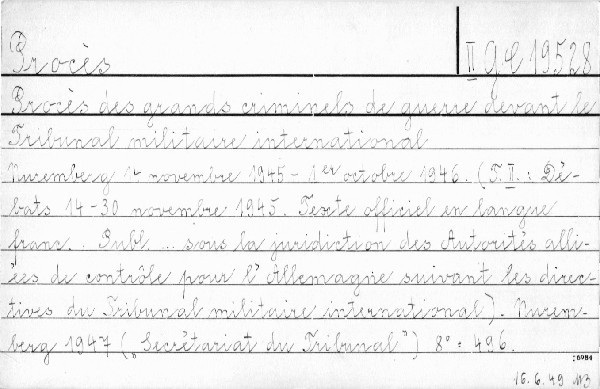 Procès II ge 19528
Procès des grands criminels de guerre devant le
Tribunal militaire international
Nuremberg 14 novembre 1945 - 1er octobre 1946. (T. II. : Dé-
bats 14-30 novembre 1945. Texte officiel en langue
franc. . Publ ... sous la juridiction des Autorités alli-
ées de contrôle pour l'Allemagne suivant les direc-
tives du Tribunal militaire international). Nurem-
berg 1947 („Secrétariat du Tribunal") 8° : 496.
16.6.49